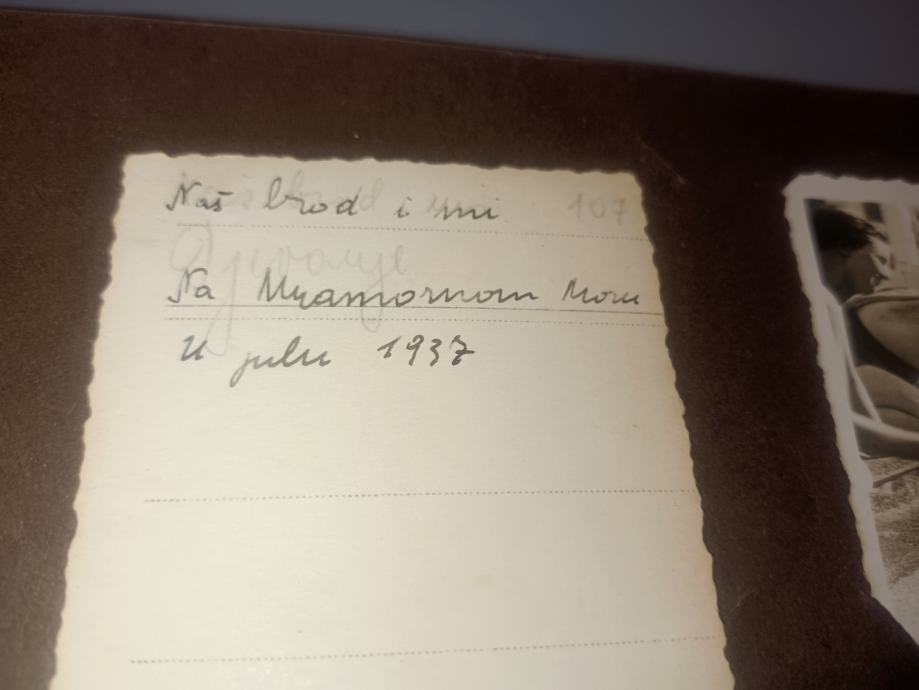 Naš brod i mi 107
Na Mramornom Moru
U julu 1937